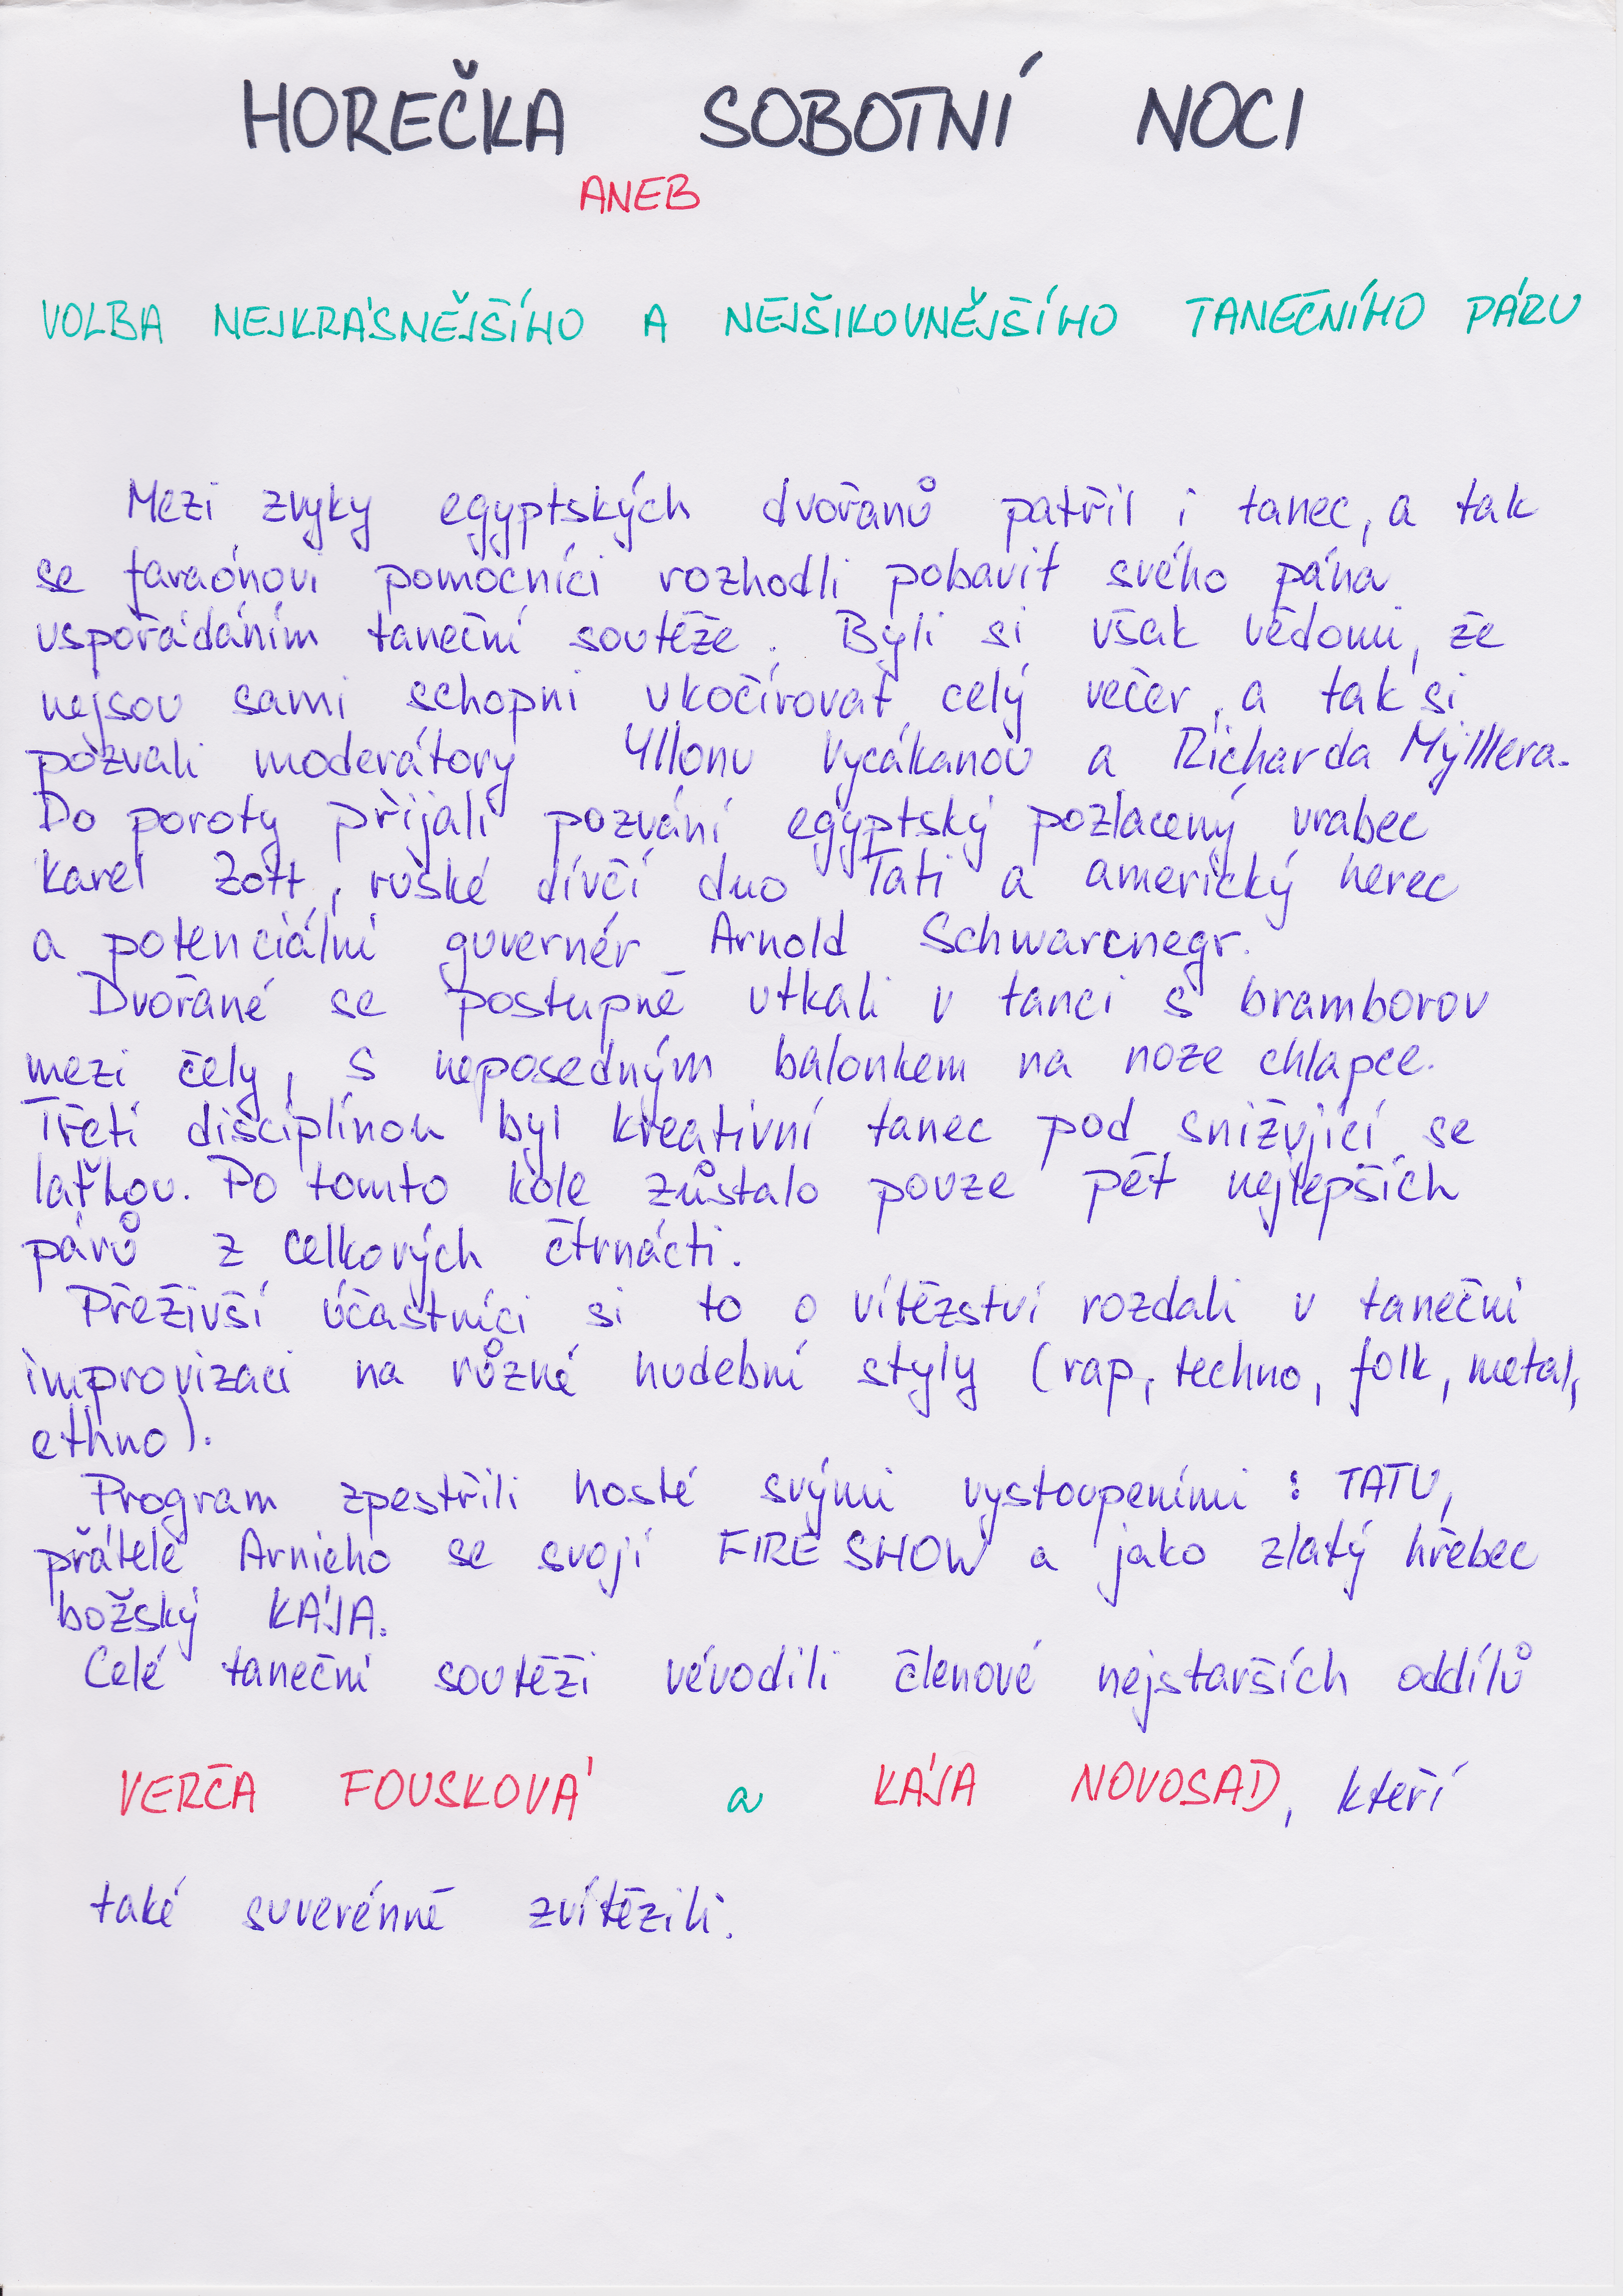 HOREČKA SOBOTNÍ NOCI
ANEB
VOLBA NEJKRÁSNĚJŠÍHO A NEJŠIKOVNĚJŠÍHO TANEČNÍHO PÁRU
Mezi zvyky egyptských dvořanů patřil i tanec, a tak
se faraónovi pomocníci rozhodli pobavit svého pána
uspořádáním taneční soutěže. Byli si však vědomi, že
nejsou sami schopni ukočírovat celý večer, a tak si
pozvali moderátory Yllonu Vycákanou a Richarda Mýlllera.
Do poroty přijali pozvání egyptský pozlacený vrabec
Karel Zott, ruské dívčí duo Tati a americký herec
a potenciální guvernér Arnold Schwarcnegr.
Dvořané se postupně utkali v tanci s bramborou
mezi čely, s neposedným balonkem na noze chlapce.
Třetí disciplínou byl kreativní tanec pod snižující se
laťkou. Po tomto kole zůstalo pouze pět nejlepších
párů z celkových čtrnácti.
Přeživší účastníci si to o vítězství rozdali v taneční
improvizaci na různé hudební styly (rap, techno, folk, metal,
ethno).
Program zpestřili hosté svými vystoupeními : TATU,
přátelé Arnieho se svojí FIRE SHOW a jako zlatý hřebec
božský KÁJA.
Celé taneční soutěži vévodili členové nejstarších oddílů
VERČA FOUSKOVÁ a KÁJA NOVOSAD, kteří
také suverénně zvítězili.